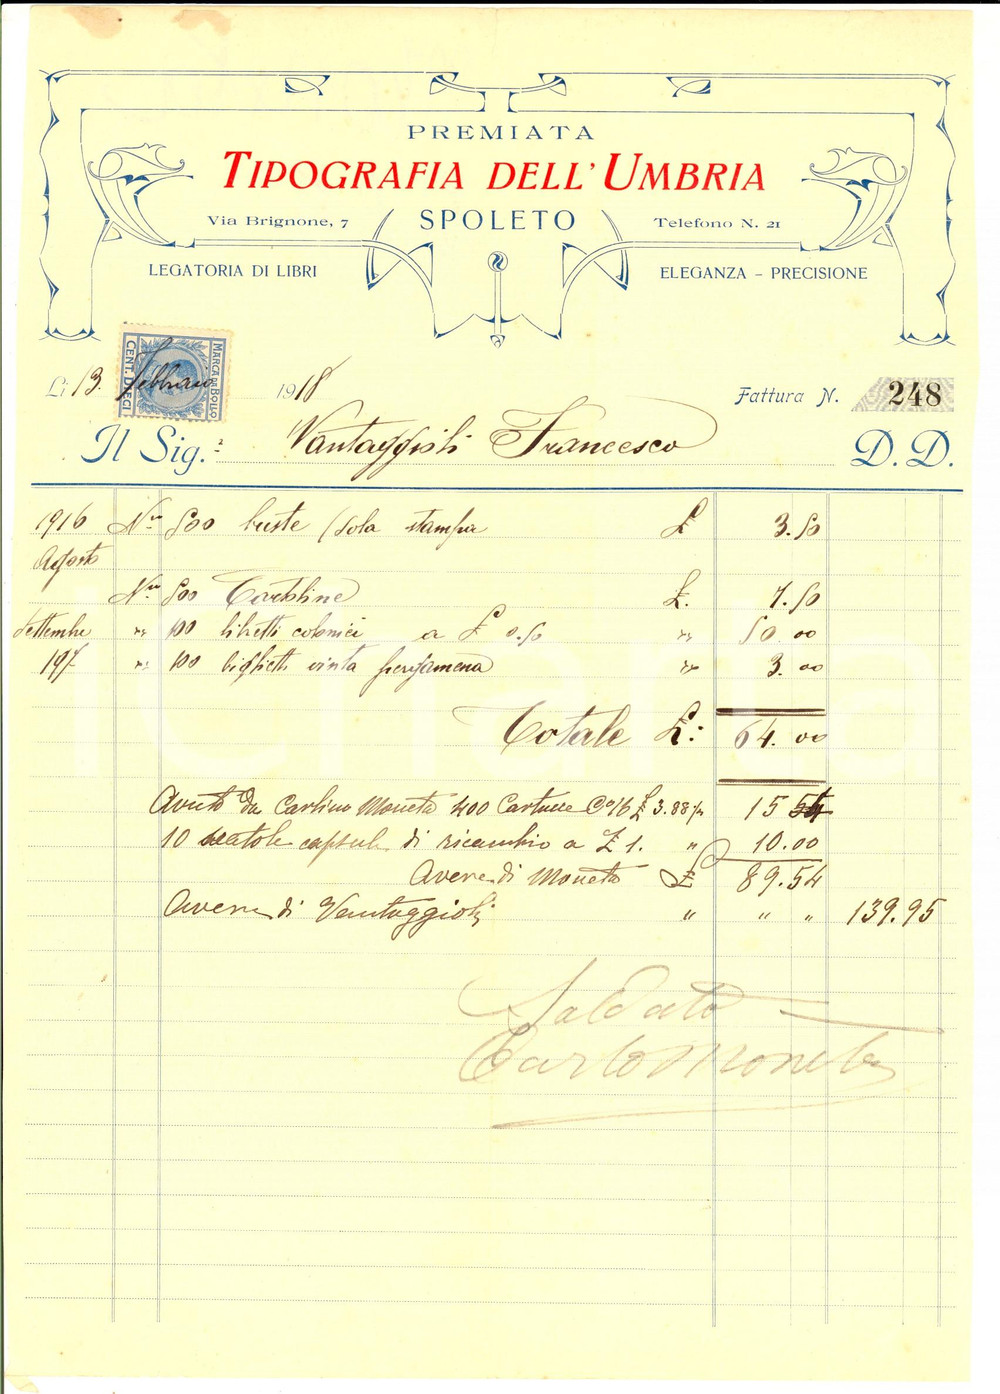 PREMIATA
TIPOGRAFIA DELL'UMBRIA
Via Brignone, 7 SPOLETO Telefono N. 21
LEGATORIA DI LIBRI ELEGANZA - PRECISIONE
MARCA DA BOLLO
CENT. DIECI
Li 13. Febbraio 1918 Fattura N. 248
Il Sig.: Vantaggioli Francesco D. D.
1916 Nu 500 buste (sola stampa £ 3.50
Agosto
Nu 500 Cartoline £. 7.50
Settembre " 100 libretti colonici a £ 0.50 " 50.00
197 " 100 biglietti vinta pergamena " 3.00
Totale £: 64.00
Avuto da Carlino Moneta 400 Cartucce C° 16 £ 3.88 15 54
10 scatole capsule di ricambio a £ 1. " 10.00
Avere di Moneta £ 89.54
Avere di Vantaggioli " " " 139.95
Saldato
Carlo Moneta